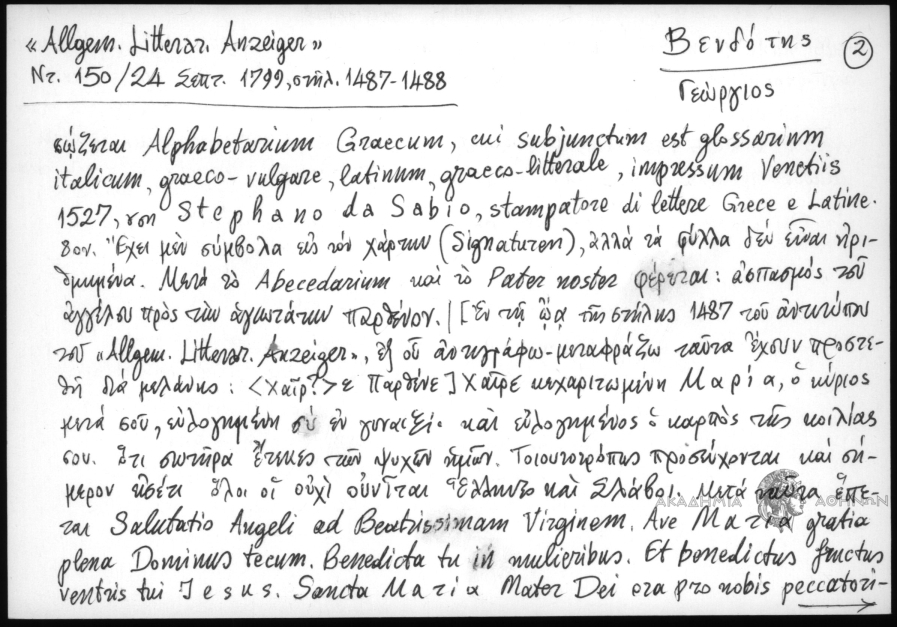 «Allgem. Litterar. Anzeiger»
Βενδότης
2
Ντ. 150/24 Σεπτ. 1799, στήλ. 1487-1488
Γεώργιος
σῴζεται Alphabetarium Graecum, cui subjunctum est glossarium
italicum, graeco-vulgare, latinum, graeco-litterale, impressum Venetiis
1527, τοῦ Stephano da Sabio, stampatore di lettere Grece e Latine.
8ον. Ἔχει μὲν σύμβολα εἰς τὸν χάρτην (Signaturen), ἀλλὰ τὰ φύλλα δὲν εἶναι ἠρι-
θμημένα. Μετὰ τὸ Abecedarium καὶ τὸ Pater noster φέρεται: ἀσπασμός τοῦ
ἀγγέλου πρὸς τὴν ἁγιωτάτην παρθένον. | [Ἐν τῇ ᾤᾳ τῆς στήλης 1487 τοῦ ἀντιτύπου
τοῦ «Allgem. Litterar. Anzeiger», ἐξ οὗ ἀντιγράφω-μεταφράζω ταῦτα ἔχουν προστε-
θῆ διὰ μελάνης: <Χαῖρ?>ε Παρθένε] Χαῖρε κεχαριτωμένη Μαρία, ὁ κύριος
μετά σοῦ, εὐλογημένη σὺ ἐν γυναιξί. καὶ εὐλογημένος ὁ καρπὸς τῆς κοιλίας
σου. ὅτι σωτῆρα ἔτεκες τῶν ψυχῶν ἡμῶν. Τοιουτοτρόπως προσεύχονται καὶ σή-
μερον εἰσέτι ὅλοι οἱ οὐχὶ οὐνῖται Ἕλληνες καὶ Σλάβοι. Μετὰ ταῦτα ἕπε-
ται Salutatio Angeli ad Beatissimam Virginem. Ave Maria gratia
plena Dominus tecum. Benedicta tu in mulieribus. Et benedictus fructus
ventris tui Jesus. Sancta Maria Mater Dei ora pro nobis peccatori-
ΑΚΑΔΗΜΙΑ ΑΘΗΝΩΝ